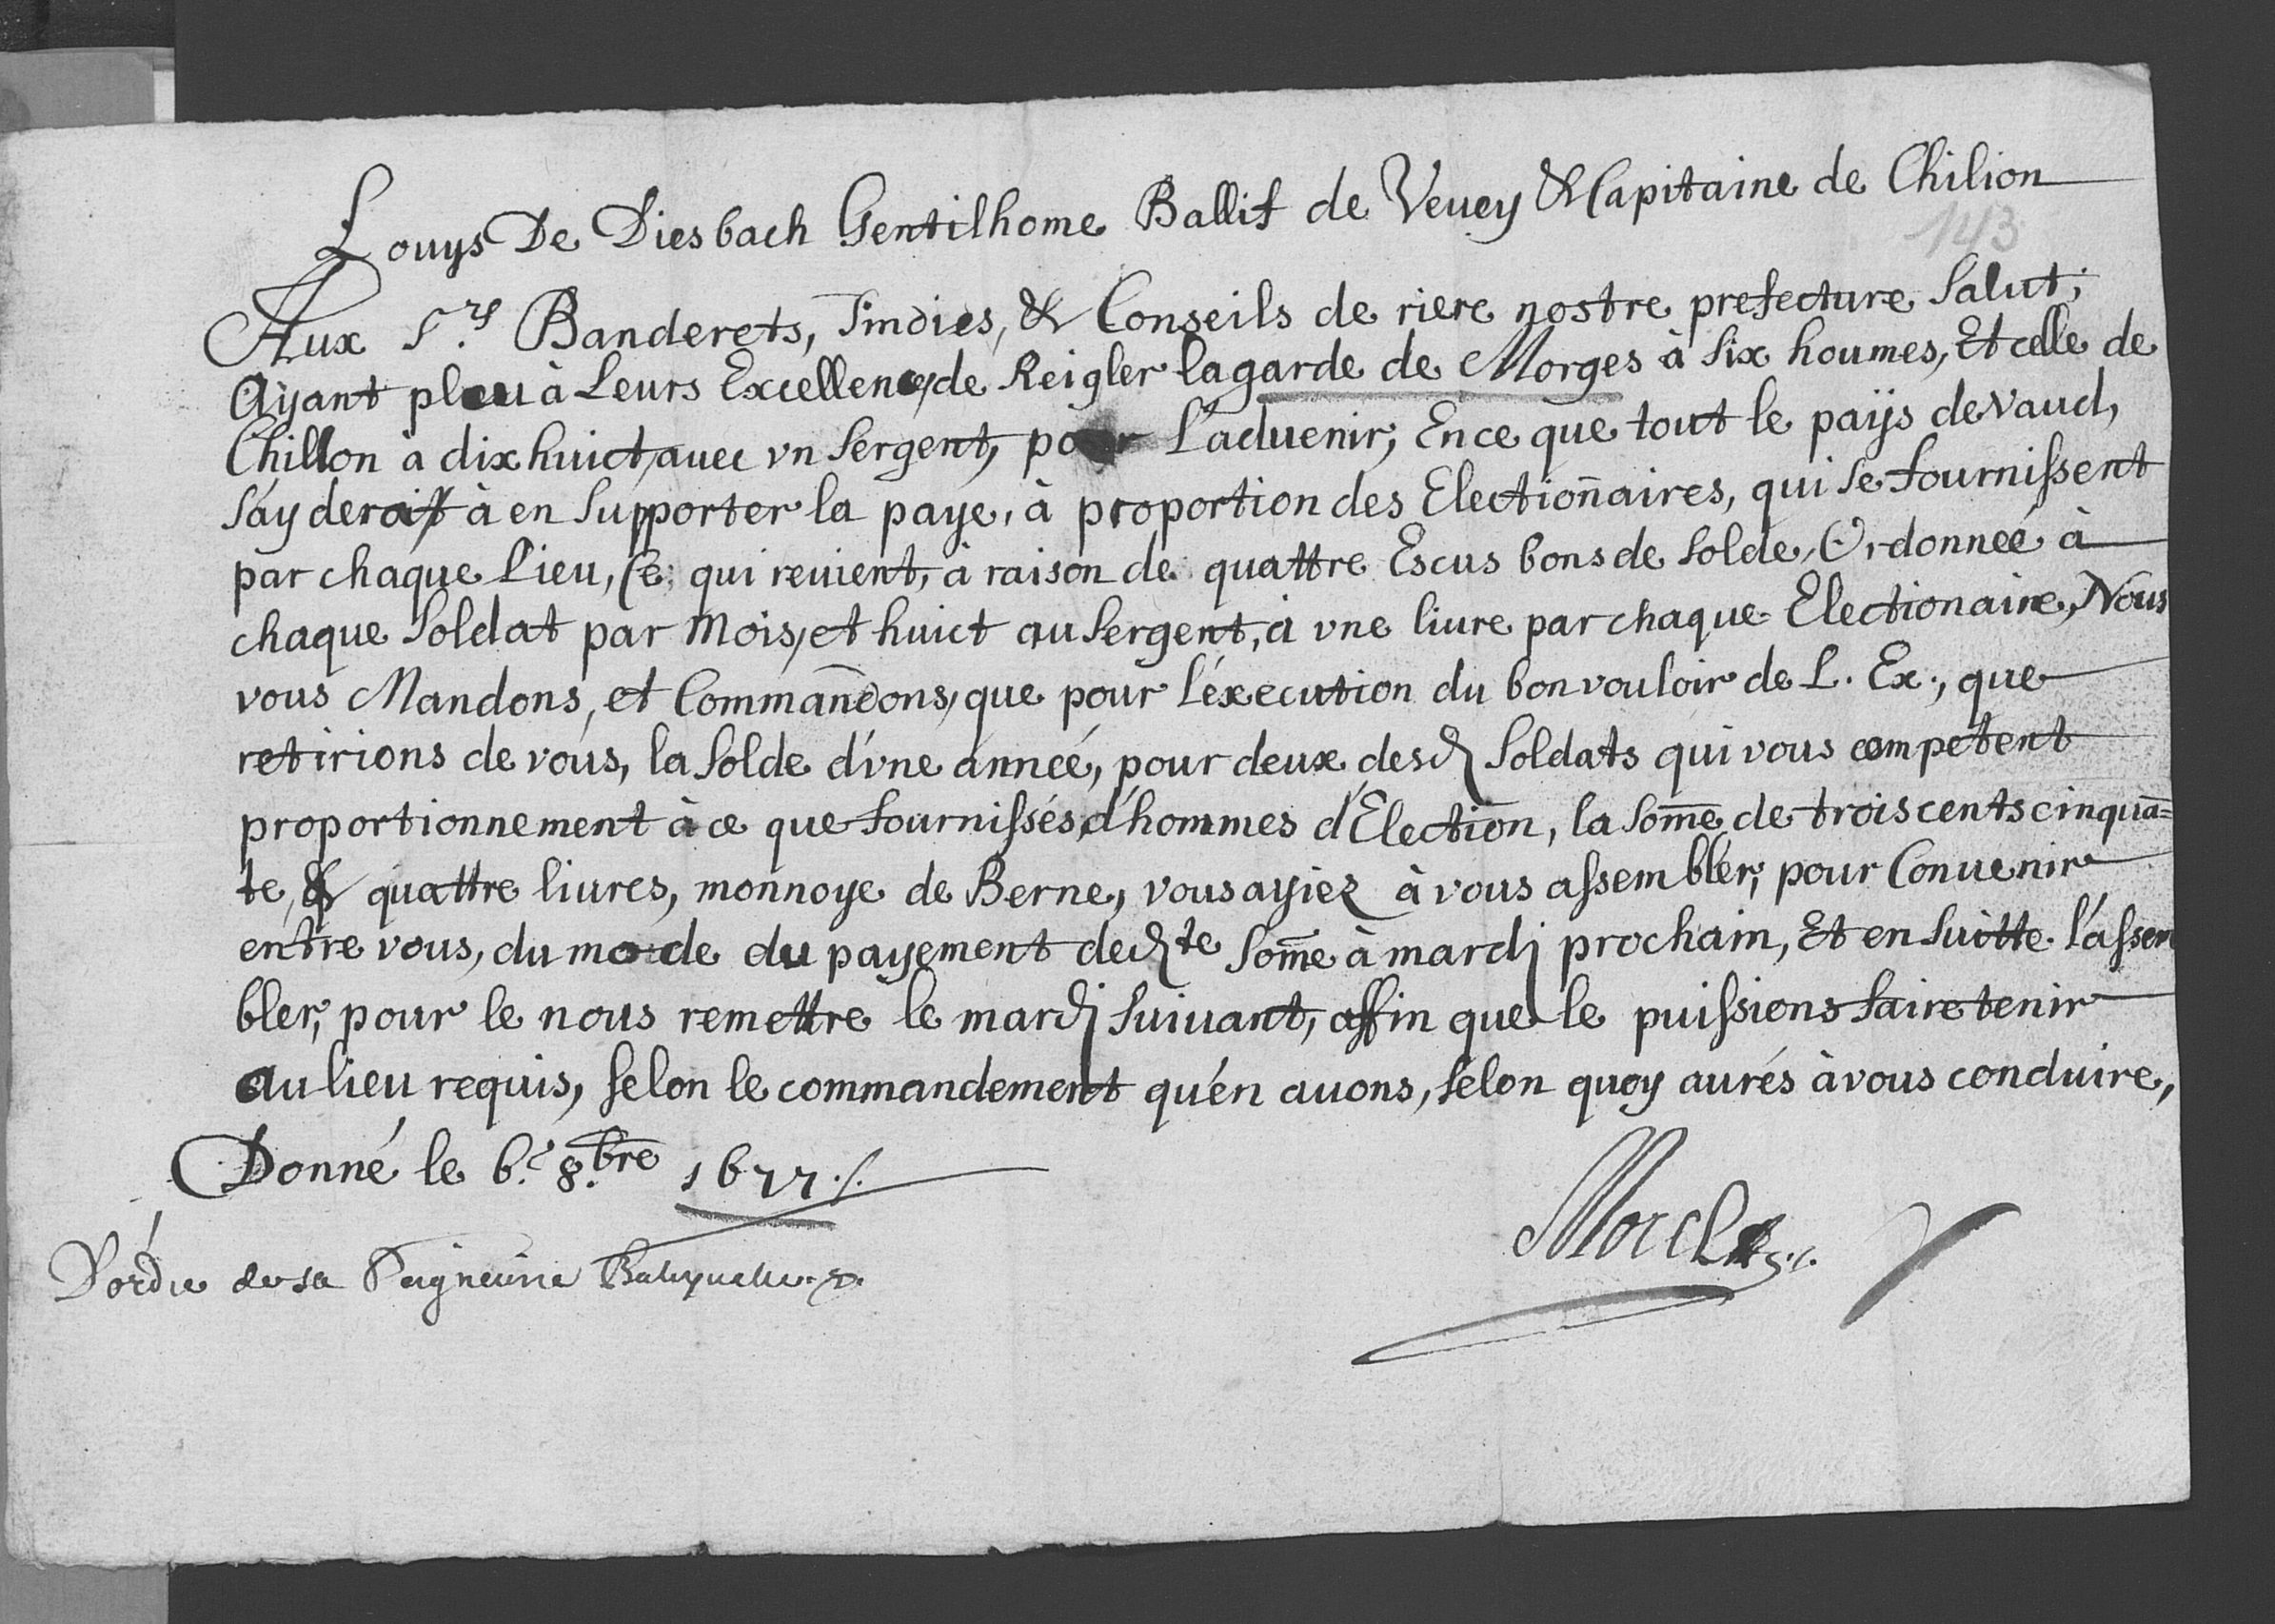 Louys De Diesbach Gentilhome Ballif de Veuey & Capitaine de Chilion
143
Aux S.rs Banderets, Sindics, & Conseils de riere nostre prefecture Salut;
Ayant pleu à Leurs Excellences, de Reigler la garde de Morges à Six houmes, Et celle de
Chillon à dix huict, auec vn Sergent, pour L'aduenir, En ce que tout le païs de Vaud,
s'ayderait à en Supporter la paye, à proportion des Electioñaires, qui se fournissent
par chaque Lieu, Ce qui reuient, à raison de quattre Escus bons de Solde, Ordonneé à
chaque Soldat par Mois, et huict au Sergent, à vne liure par chaque Electionaire, Nous
vous Mandons, et Commandons, que pour l'éxecution du bon vouloir de L. Ex., que
retirions de vous, la Solde d'vne anneé, pour deux desd. Soldats qui vous competent
proportionnement à ce que fournissés d'hommes d'Election, la Som̄e de trois cents cinquā=
te, & quattre liures, monnoye de Berne, vous ayiez à vous assembler, pour Conuenir
entre vous, du mode du payement ded.te Som̄e à mardj prochain, Et en Suitte l'assem
bler, pour le nous remettre le mardj Suiuant, affin que le puissions faire tenir
au lieu requis, selon le commandement qu'en auons, selon quoy aurés à vous conduire,
Donné le 6.e 8.bre 1677./.
D'ordre de sa Seigneurie